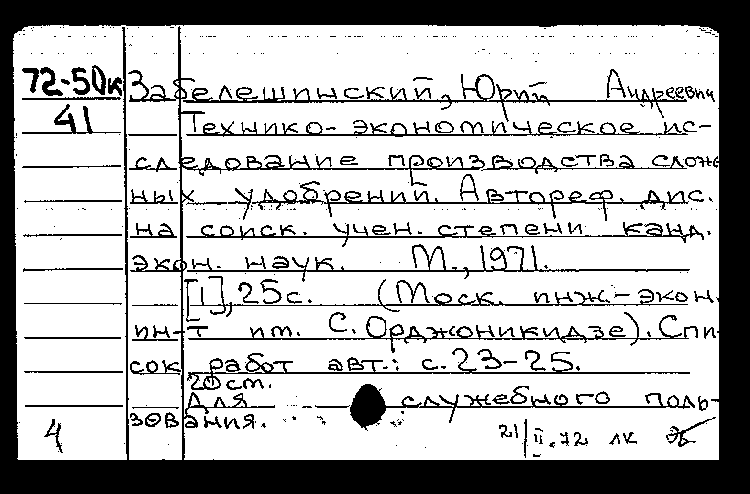 72-50к Забелешинский, Юрий Андреевич
41 Технико-экономическое ис-
следование производства слож-
ных удобрений. Автореф. дис.
на соиск. учен. степени канд.
экон. наук. М., 1971.
[1], 25 с. (Моск. инж.-экон.
ин-т им. С. Орджоникидзе). Спи-
сок работ авт.: с. 23-25.
20 ст.
Для служебного поль-
зования.
4 21/II.72 ЛК